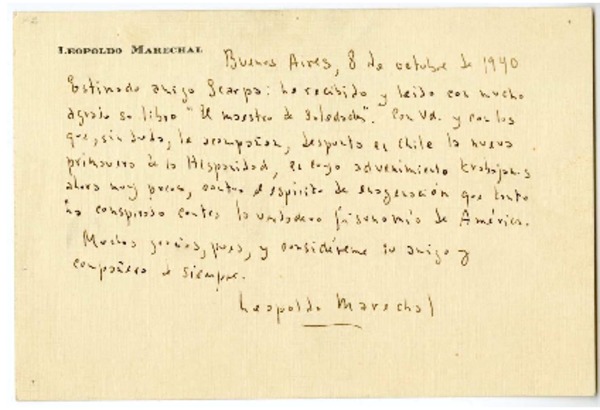 LEOPOLDO MARECHAL
Buenos Aires, 8 de octubre de 1940
Estimado amigo Scarpa: he recibido y leído con mucho
agrado su libro "El maestro de Soledades". Con Ud. y con los
que, sin duda, le acompañan, despunta en Chile la nueva
primavera de la Hispanidad, en cuyo advenimiento trabajamos
ahora muy pocos, contra el espíritu de enajenación que tanto
ha conspirado contra la verdadera fisonomía de América.
Muchas gracias, pues, y considéreme su amigo y
compañero de siempre.
Leopoldo Marechal